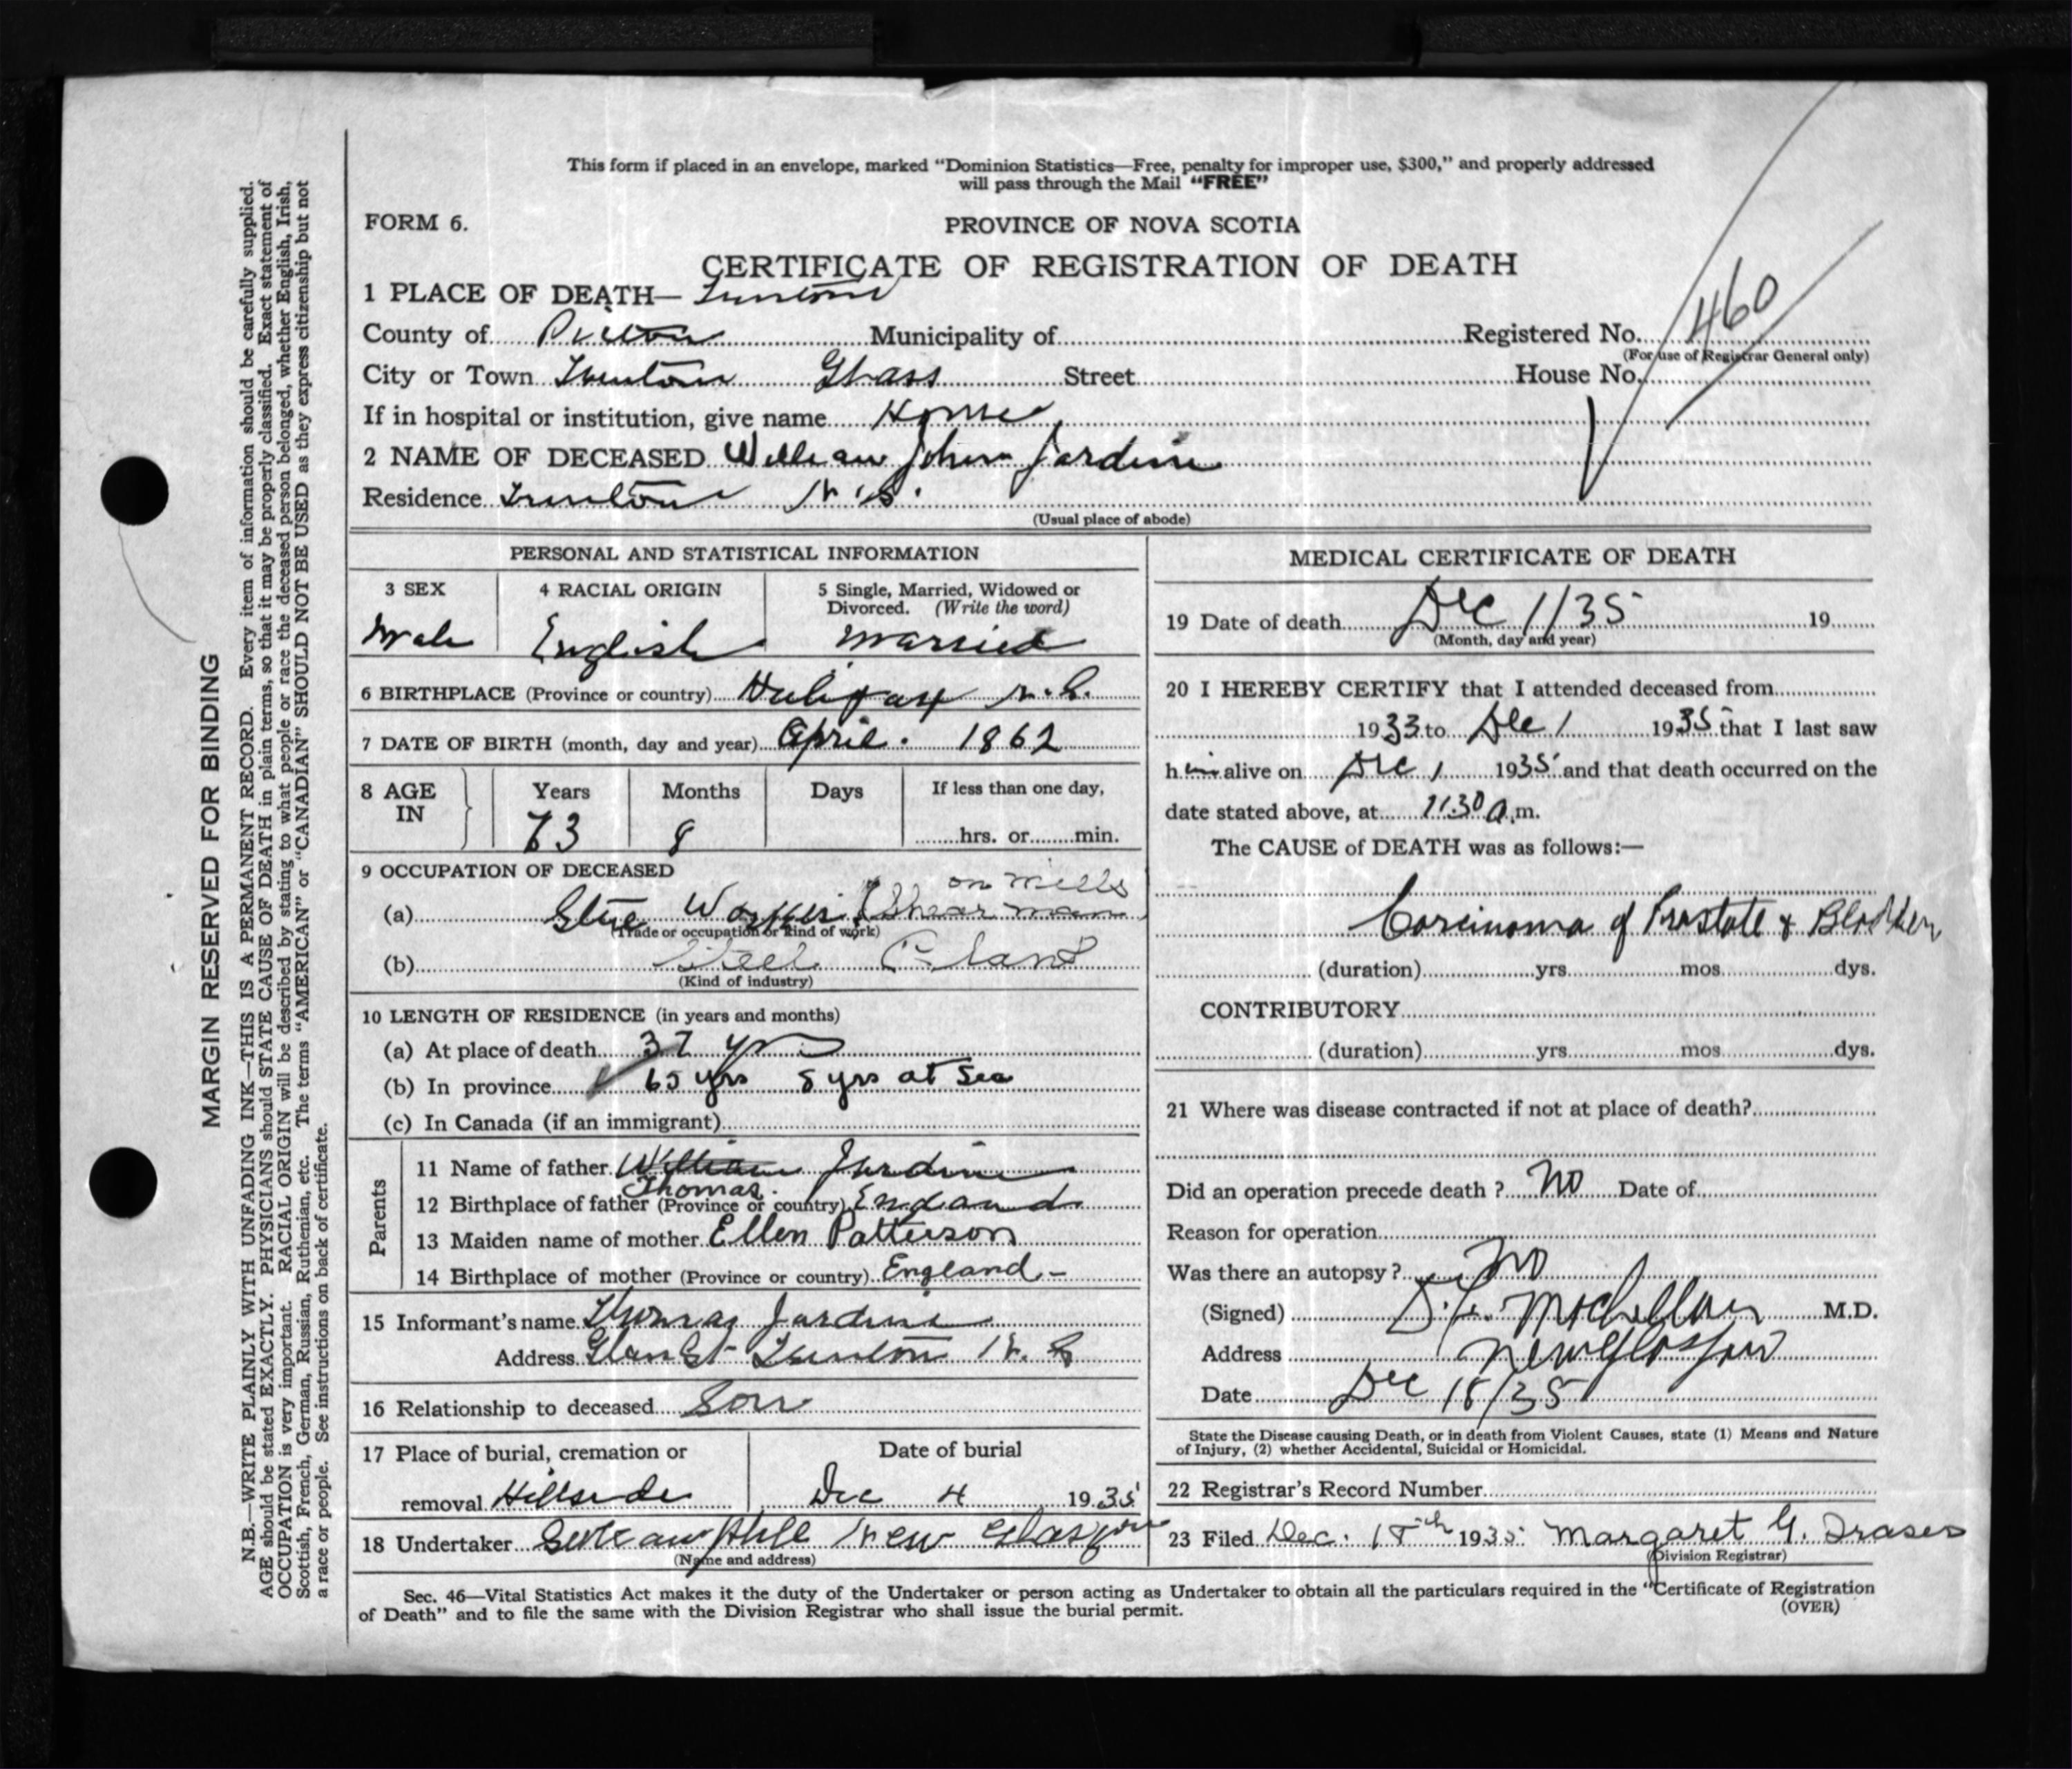 This form if placed in an envelope, marked "Dominion Statistics—Free, penalty for improper use, $300," and properly addressed
will pass through the Mail "FREE"
FORM 6.
PROVINCE OF NOVA SCOTIA
CERTIFICATE OF REGISTRATION OF DEATH
1 PLACE OF DEATH— Trenton
County of Pictou Municipality of Registered No. 460
(For use of Registrar General only)
City or Town Trenton Glass Street House No.
If in hospital or institution, give name Home
2 NAME OF DECEASED William John Jardine
Residence Trenton N.S.
(Usual place of abode)
PERSONAL AND STATISTICAL INFORMATION
3 SEX 4 RACIAL ORIGIN 5 Single, Married, Widowed or
Divorced. (Write the word)
Male English Married
6 BIRTHPLACE (Province or country) Halifax N.S.
7 DATE OF BIRTH (month, day and year) April 1862
8 AGE Years Months Days If less than one day,
IN 73 8 hrs. or min.
9 OCCUPATION OF DECEASED
on mills
(a) Worker (Shear man
(Trade or occupation or kind of work)
(b) Steel Plant
(Kind of industry)
10 LENGTH OF RESIDENCE (in years and months)
(a) At place of death 37 yrs
(b) In province 65 yrs 8 yrs at Sea
(c) In Canada (if an immigrant)
Parents
11 Name of father William Jardine
Thomas
12 Birthplace of father (Province or country) England
13 Maiden name of mother Ellen Patterson
14 Birthplace of mother (Province or country) England -
15 Informant's name Thomas Jardine
Address Glass St Trenton N.S
16 Relationship to deceased Son
17 Place of burial, cremation or Date of burial
removal Hillside Dec 4 1935
18 Undertaker New Glasgow
(Name and address)
MEDICAL CERTIFICATE OF DEATH
19 Date of death Dec 1/35 19
(Month, day and year)
20 I HEREBY CERTIFY that I attended deceased from
1933 to Dec 1 1935 that I last saw
him alive on Dec 1 1935 and that death occurred on the
date stated above, at 11.30 a.m.
The CAUSE of DEATH was as follows:—
Carcinoma of Prostate & Bladder
(duration) yrs mos dys.
CONTRIBUTORY
(duration) yrs mos dys.
21 Where was disease contracted if not at place of death?
Did an operation precede death? No Date of
Reason for operation
Was there an autopsy? No
(Signed) M.D.
Address New Glasgow
Date Dec 18/35
State the Disease causing Death, or in death from Violent Causes, state (1) Means and Nature
of Injury, (2) whether Accidental, Suicidal or Homicidal.
22 Registrar's Record Number
23 Filed Dec. 18th 1935 Margaret G. Fraser
(Division Registrar)
Sec. 46—Vital Statistics Act makes it the duty of the Undertaker or person acting as Undertaker to obtain all the particulars required in the "Certificate of Registration
of Death" and to file the same with the Division Registrar who shall issue the burial permit.
(OVER)
MARGIN RESERVED FOR BINDING
N.B.—WRITE PLAINLY WITH UNFADING INK—THIS IS A PERMANENT RECORD. Every item of information should be carefully supplied.
AGE should be stated EXACTLY. PHYSICIANS should STATE CAUSE OF DEATH in plain terms, so that it may be properly classified. Exact statement of
OCCUPATION is very important. RACIAL ORIGIN will be described by stating to what people or race the deceased person belonged, whether English, Irish,
Scottish, French, German, Russian, Ruthenian, etc. The terms "AMERICAN" or "CANADIAN" SHOULD NOT BE USED as they express citizenship but not
a race or people. See instructions on back of certificate.